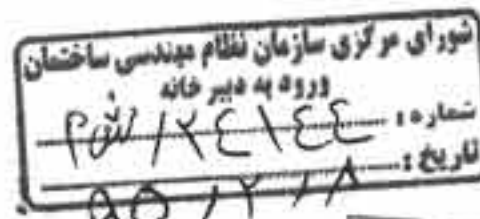 شورای مرکزی سازمان نظام مهندسی ساختمان
ورود به دبیرخانه
شماره: ۲۴۱۴۴ / ش م
تاریخ: ۹۵/۲/۸